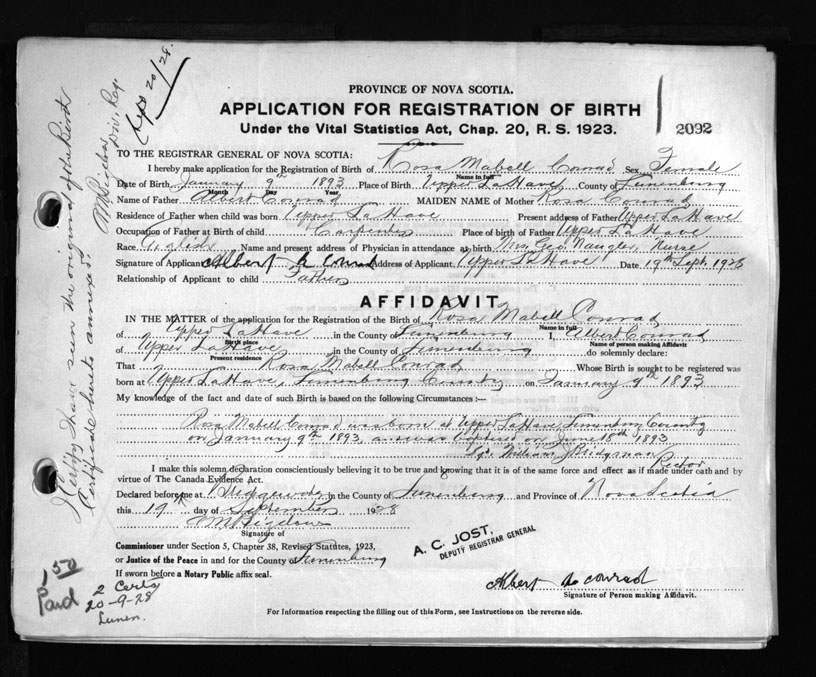 PROVINCE OF NOVA SCOTIA.
APPLICATION FOR REGISTRATION OF BIRTH
Under the Vital Statistics Act, Chap. 20, R. S. 1923.
2092
Sept 20/28.
I Certify I have seen the original of the Birth
Certificate hereto annexed.
Div. Reg.
TO THE REGISTRAR GENERAL OF NOVA SCOTIA:
I hereby make application for the Registration of Birth of Rosa Mabell Conrad Sex Female
Name in full
Date of Birth January 9th 1893 Place of Birth Upper LaHave, County of Lunenburg
Month Day Year
Name of Father Albert Conrad MAIDEN NAME of Mother Rosa Conrad
Residence of Father when child was born Upper LaHave Present address of Father Upper LaHave
Occupation of Father at Birth of child Carpenter Place of birth of Father Upper LaHave
Race English Name and present address of Physician in attendance at birth Mrs Geo. Naugler, Nurse
Signature of Applicant Albert A Conrad Address of Applicant Upper LaHave Date 19th Sept. 1928
Relationship of Applicant to child Father
AFFIDAVIT
IN THE MATTER of the application for the Registration of the Birth of Rosa Mabell Conrad
Name in full
of Upper LaHave in the County of Lunenburg I, Albert Conrad
Birth place Name of person making Affidavit
of Upper LaHave in the County of Lunenburg do solemnly declare:
Present residence
That Rosa Mabell Conrad Whose Birth is sought to be registered was
born at Upper LaHave, Lunenburg County on January 9th 1893
My knowledge of the fact and date of such Birth is based on the following Circumstances :—
Rosa Mabell Conrad was born at Upper LaHave Lunenburg County
on January 9th 1893, and was baptized on June 18th 1893
Sgd. William J Bridgman
Rector
I make this solemn declaration conscientiously believing it to be true and knowing that it is of the same force and effect as if made under oath and by
virtue of The Canada Evidence Act.
Declared before me at Bridgewater in the County of Lunenburg and Province of Nova Scotia
this 19 day of September 1928
Signature of
Commissioner under Section 5, Chapter 38, Revised Statutes, 1923,
or Justice of the Peace in and for the County of Lunenburg
If sworn before a Notary Public affix seal.
A. C. JOST,
DEPUTY REGISTRAR GENERAL
Albert A Conrad
Signature of Person making Affidavit.
1.50
Paid
2 Certs
20-9-28
Lunen.
For Information respecting the filling out of this Form, see Instructions on the reverse side.